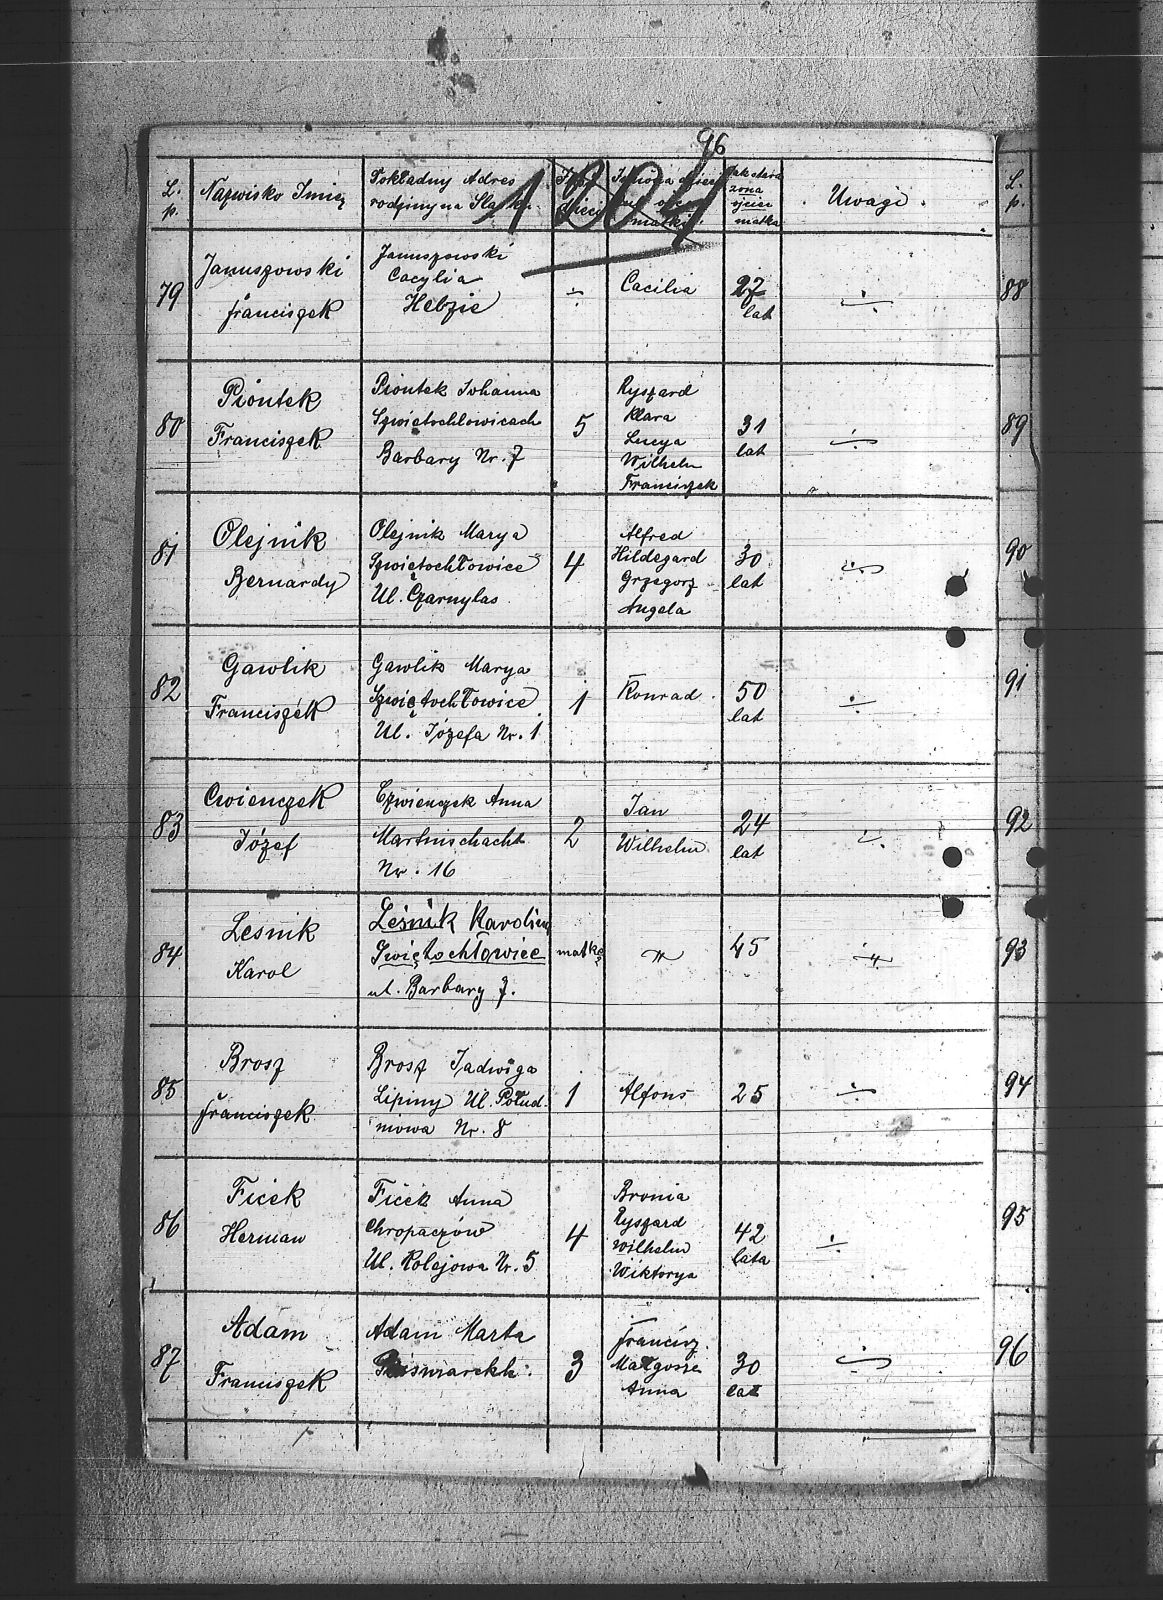 96
1204
L. p.
Nazwisko Imię
Dokładny Adres
rodziny na Śląsku
Imiona dzieci
matki
Jak stara
żona
ojciec
matka
Uwagi.
L. p.
79
Januszowski
Franciszek
Januszowski
Cacylia
Hebzie
÷
Cacilia
27
lat
÷
88
80
Piontek
Franciszek
Piontek Johanna
Szwiętochlowicach
Barbary Nr. 7
5
Ryszard
Klara
Lucya
Wilhelm
Franciszek
31
lat
÷
89
81
Olejnik
Bernardy
Olejnik Marya
Szwiętochłowice
Ul. Czarnylas
4
Alfred
Hildegard
Grzegorz
Angela
30
lat
÷
90
82
Gawlik
Franciszek
Gawlik Marya
Szwiętochłowice
Ul. Józefa Nr. 1
1
Konrad
50
lat
÷
91
83
Cwienczek
Józef
Czwienczek Anna
Martinschacht
Nr. 16
2
Jan
Wilhelm
24
lat
÷
92
84
Lesnik
Karol
Leśnik Karolina
Świętochłowice
ul. Barbary 7.
matka
"
45
"
93
85
Brosz
Franciszek
Brosz Jadwiga
Lipiny Ul. Połud.
niowa Nr. 8
1
Alfons
25
÷
94
86
Ficek
Herman
Ficek Anna
Chropaczów
Ul. Kolejowa Nr. 5
4
Bronia
Ryszard
Wilhelm
Wiktorya
42
lata
÷
95
87
Adam
Franciszek
Adam Marta
3
Francisz.
Anna
30
lat
÷
96